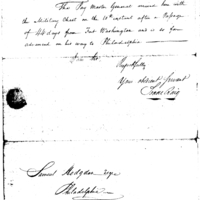 The Pay Master General arrived here with
the Military Chest on the 10th instant after a Passage
of 44 days from Fort Washington and is so far
advanced on his way to Philadelphia
I am Sir
Respectfully
Your obedient Servant
Isaac Craig
Samuel Hodgdon Esqr
Philadelphia